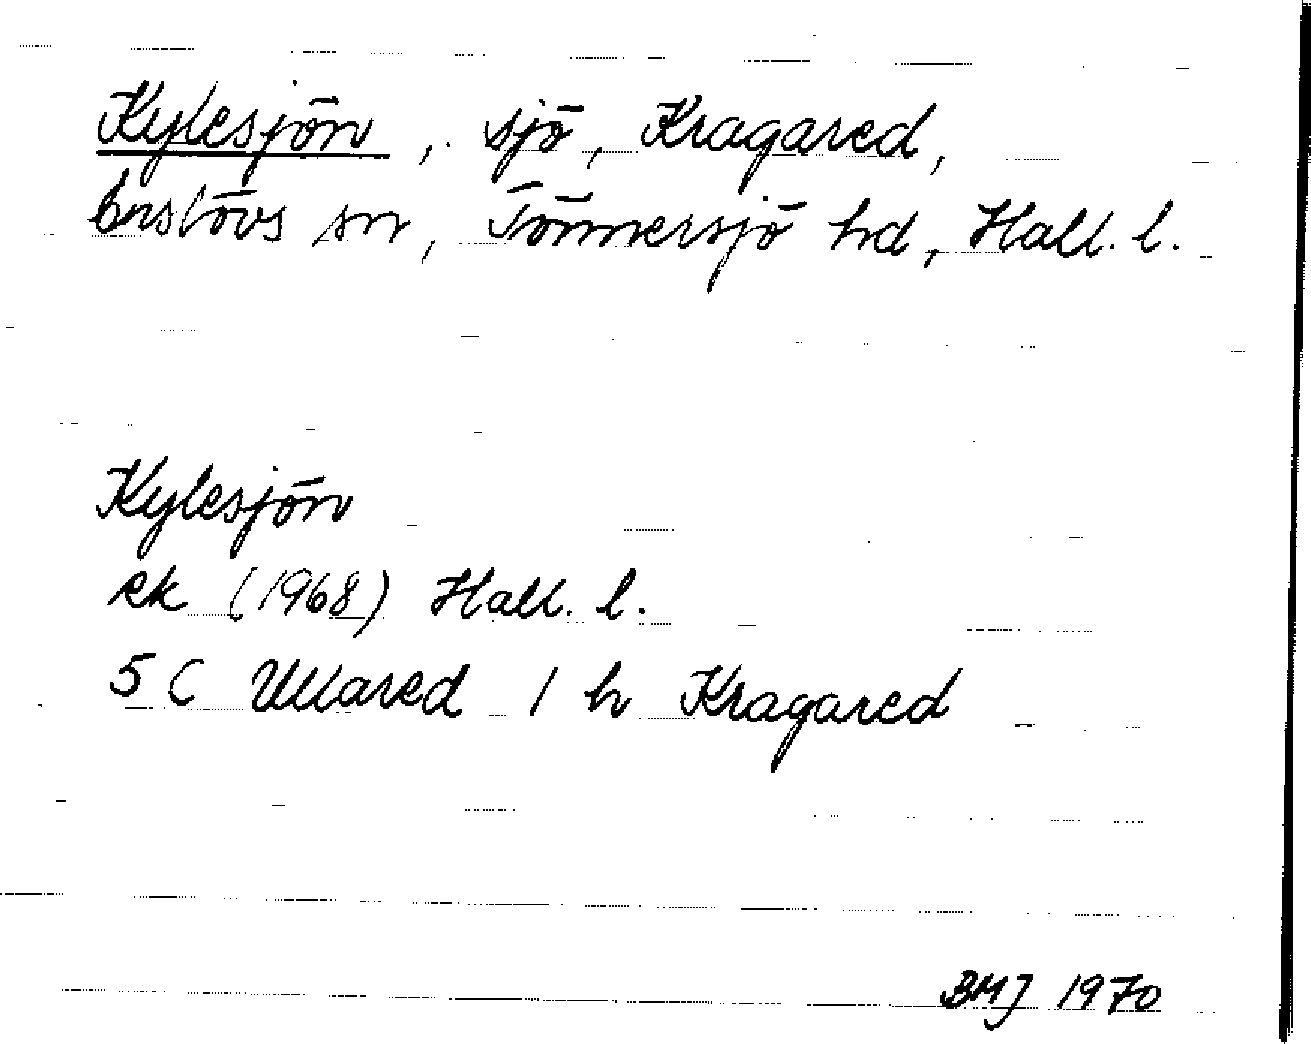 Kylesjön, sjö, Kragared,
Enslövs sn, Tönnersjö hd, Hall. l.
Kylesjön
ek (1968) Hall. l.
5 C Ullared 1 h Kragared
BMJ 1970